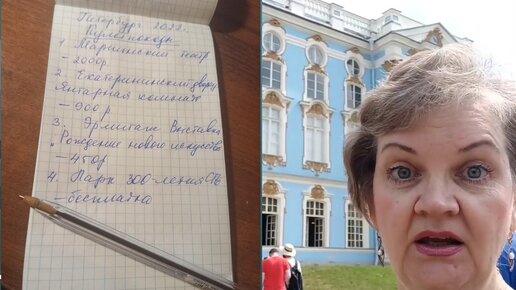 Петербург 2022г.
Культпоходы
1. Мариинский театр
– 2000р.
2. Екатерининский дворец
Янтарная комната
– 900 р
3. Эрмитаж Выставка
„Рождение нового искусства
– 450р.
4. Парк 300-летия СПб
– бесплатно